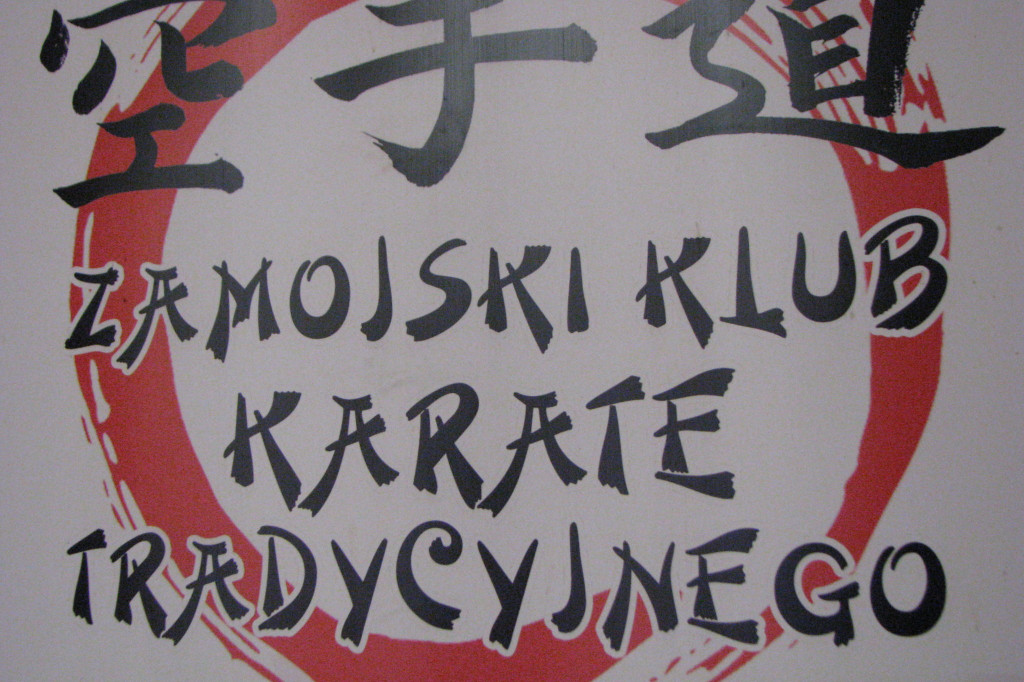 空手道
ZAMOJSKI KLUB
KARATE
TRADYCYJNEGO